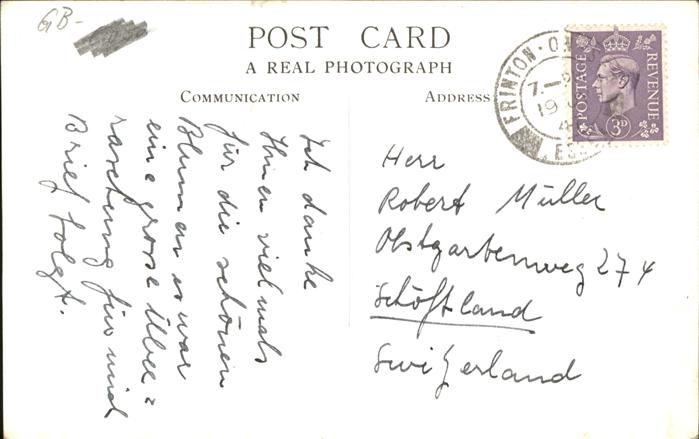 GB-
POST CARD
A REAL PHOTOGRAPH
COMMUNICATION
ADDRESS
FRINTON·ON
7-
19
4
ESS
POSTAGE
REVENUE
3D
Ich danke
Ihnen vielmals
für die schönen
Blumen es war
eine grosse Über=
raschung für mich
Brief folgt.
Herr
Robert Müller
Obstgartenweg 274
Schöftland
Switzerland